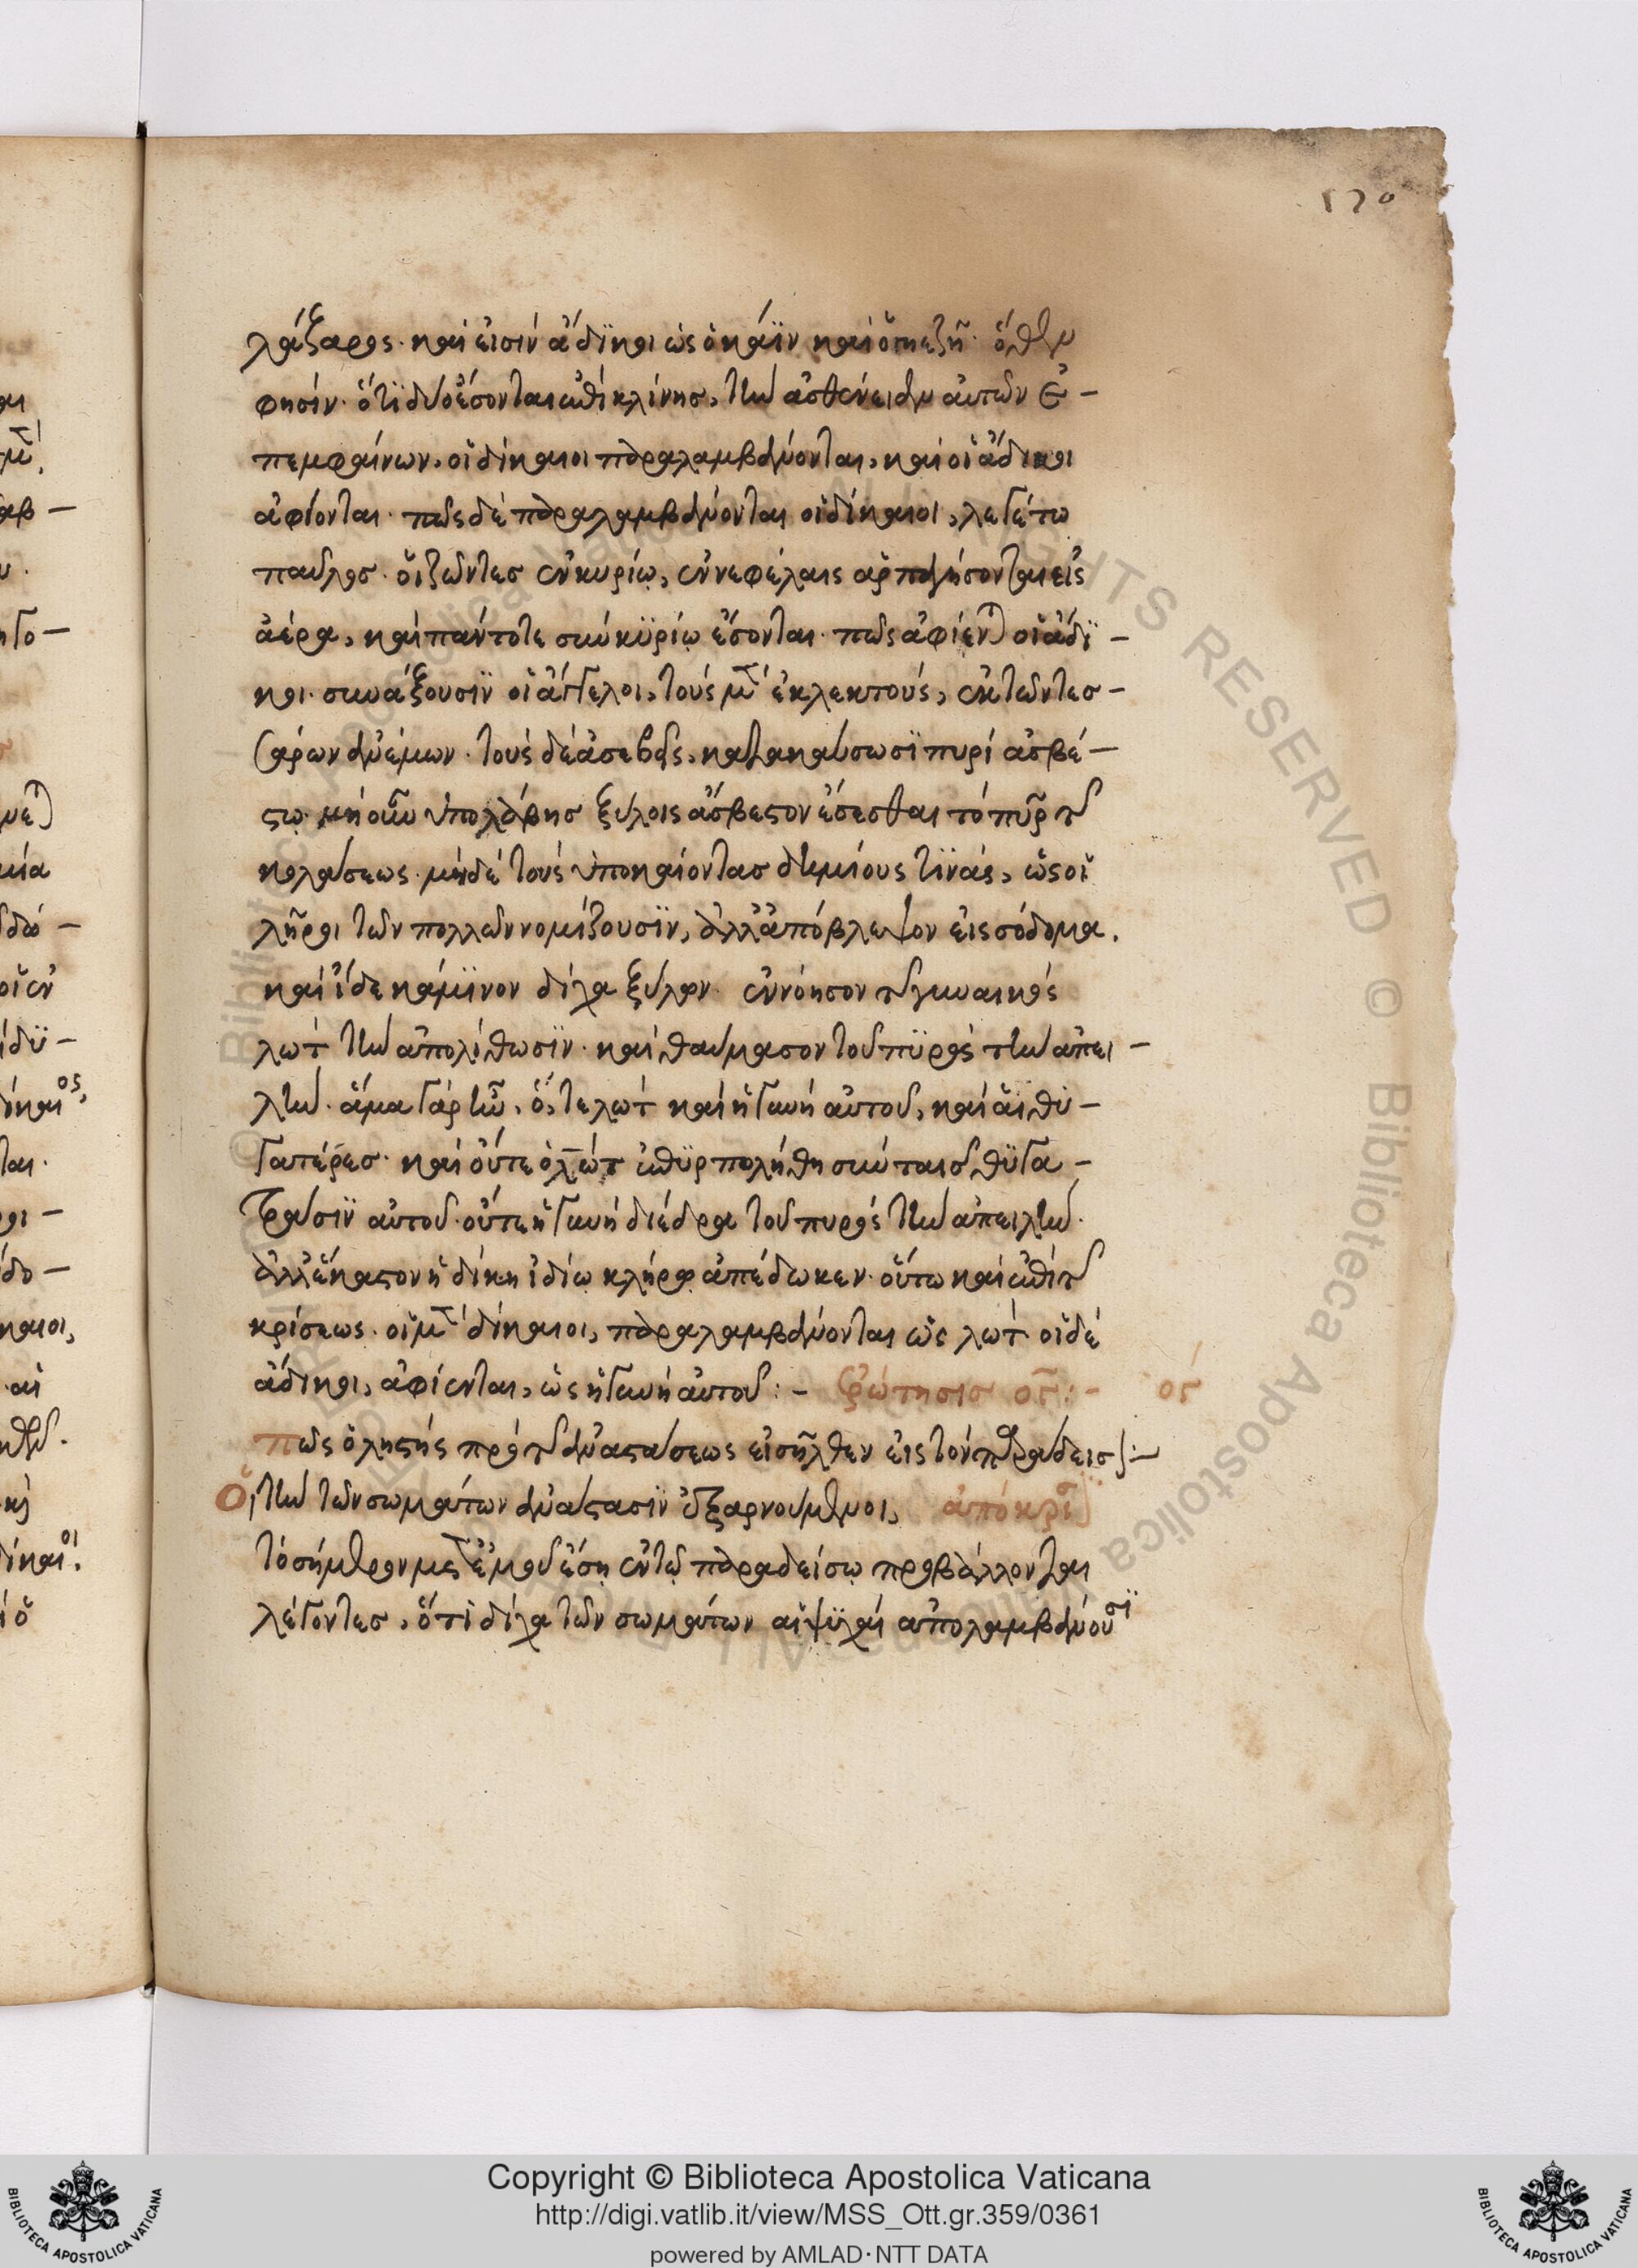 170
λάζαρος· καὶ εἰσὶν ἄδϊκοι ὡς ὁ κάϊν καὶ ὁ γιεζῆ· ὅθεν
φησίν· ὅτϊ δύο ἔσονται ἐπὶ κλίνησ, τὴν ἀσθένειαν αὐτῶν ἐ-
πεμφαίνων. οἱ δίκαιοι παραλαμβάνονται, καὶ οἱ ἄδικοι
ἀφίονται· πῶς δὲ παραλαμβάνονται οἱ δίκαιοι, λεγέτω
παῦλοσ· οἱ ζῶντεσ ἐν κυρίῳ, ἐν νεφέλαις ἁρπαγήσονται εἰς
ἀέρα, καὶ πάντοτε σὺν κϋρίῳ ἔσονται· πῶς ἀφίενται οἱ ἄδϊ-
κοι· συνάξουσϊν οἱ ἄγγελοι, τοὺς μὲν ἐκλεκτούς, ἐκ τῶν τεσ-
σάρων ἀνέμων· τοὺς δὲ ἀσεβεῖς, κατακαύσωσϊ πυρὶ ἀσβέ-
στῳ· μὴ οὖν ὑπολάβησ ξύλοις ἄσβεστον ἔσεσθαι τὸ πῦρ τῆς
κολάσεως· μὴδὲ τοὺς ὑποκαίοντασ δημίους τϊνάς, ὡς οἱ
λῆροι τῶν πολλῶν νομίζουσϊν, ἀλλ' ἀπόβλεψον εἰς σόδομα.
καὶ ἴδε κάμϊνον δίχα ξύλων· ἐννόησον τῆς γυναικὸς
λὼτ τὴν ἀπολίθωσϊν· καὶ θαύμασον τοῦ πϋρὸς τὴν ἀπει-
λήν· ἅμα γὰρ ἦν, ὅ,τε λὼτ καὶ ἡ γυνὴ αὐτοῦ, καὶ αἱ θυ-
γατέρεσ· καὶ οὔτε ὁ λὼτ ἐπϋρπολήθη σὺν ταισ θϋγα-
τράσϊν αὐτοῦ· οὔτε ἡ γυνὴ διέδρα τοῦ πυρὸς τὴν ἀπειλήν·
ἀλλ' ἕκαστον ἡ δίκη ἰδίῳ κλήρῳ ἀπέδωκεν· οὕτω καὶ ἐπὶ τῆς
κρίσεως· οἱ μὲν δίκαιοι, παραλαμβάνονται ὡς λώτ· οἱ δὲ
ἄδικοι, ἀφίενται, ὡς ἡ γυνὴ αὐτοῦ:- ἐρώτησις ος:- ος
πῶς ὁ ληστὴς πρὸ τῆς ἀναστάσεως εἰσῆλθεν εἰς τὸν παράδεισον:-
Οἱ τὴν τῶν σωμάτων ἀνάστασϊν ἐξαρνούμενοι, ἀπόκρισις
τὸ σήμερον μετ' ἐμοῦ ἔσῃ ἐν τῷ παραδείσῳ προβάλλονται
λέγοντεσ, ὅτι δίχα τῶν σωμάτων αἱ ψϋχαὶ ἀπολαμβάνουσϊ
Copyright © Biblioteca Apostolica Vaticana
http://digi.vatlib.it/view/MSS_Ott.gr.359/0361
powered by AMLAD·NTT DATA